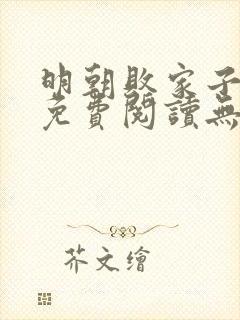 明朝敗家子
免費閱讀無
芥文繪